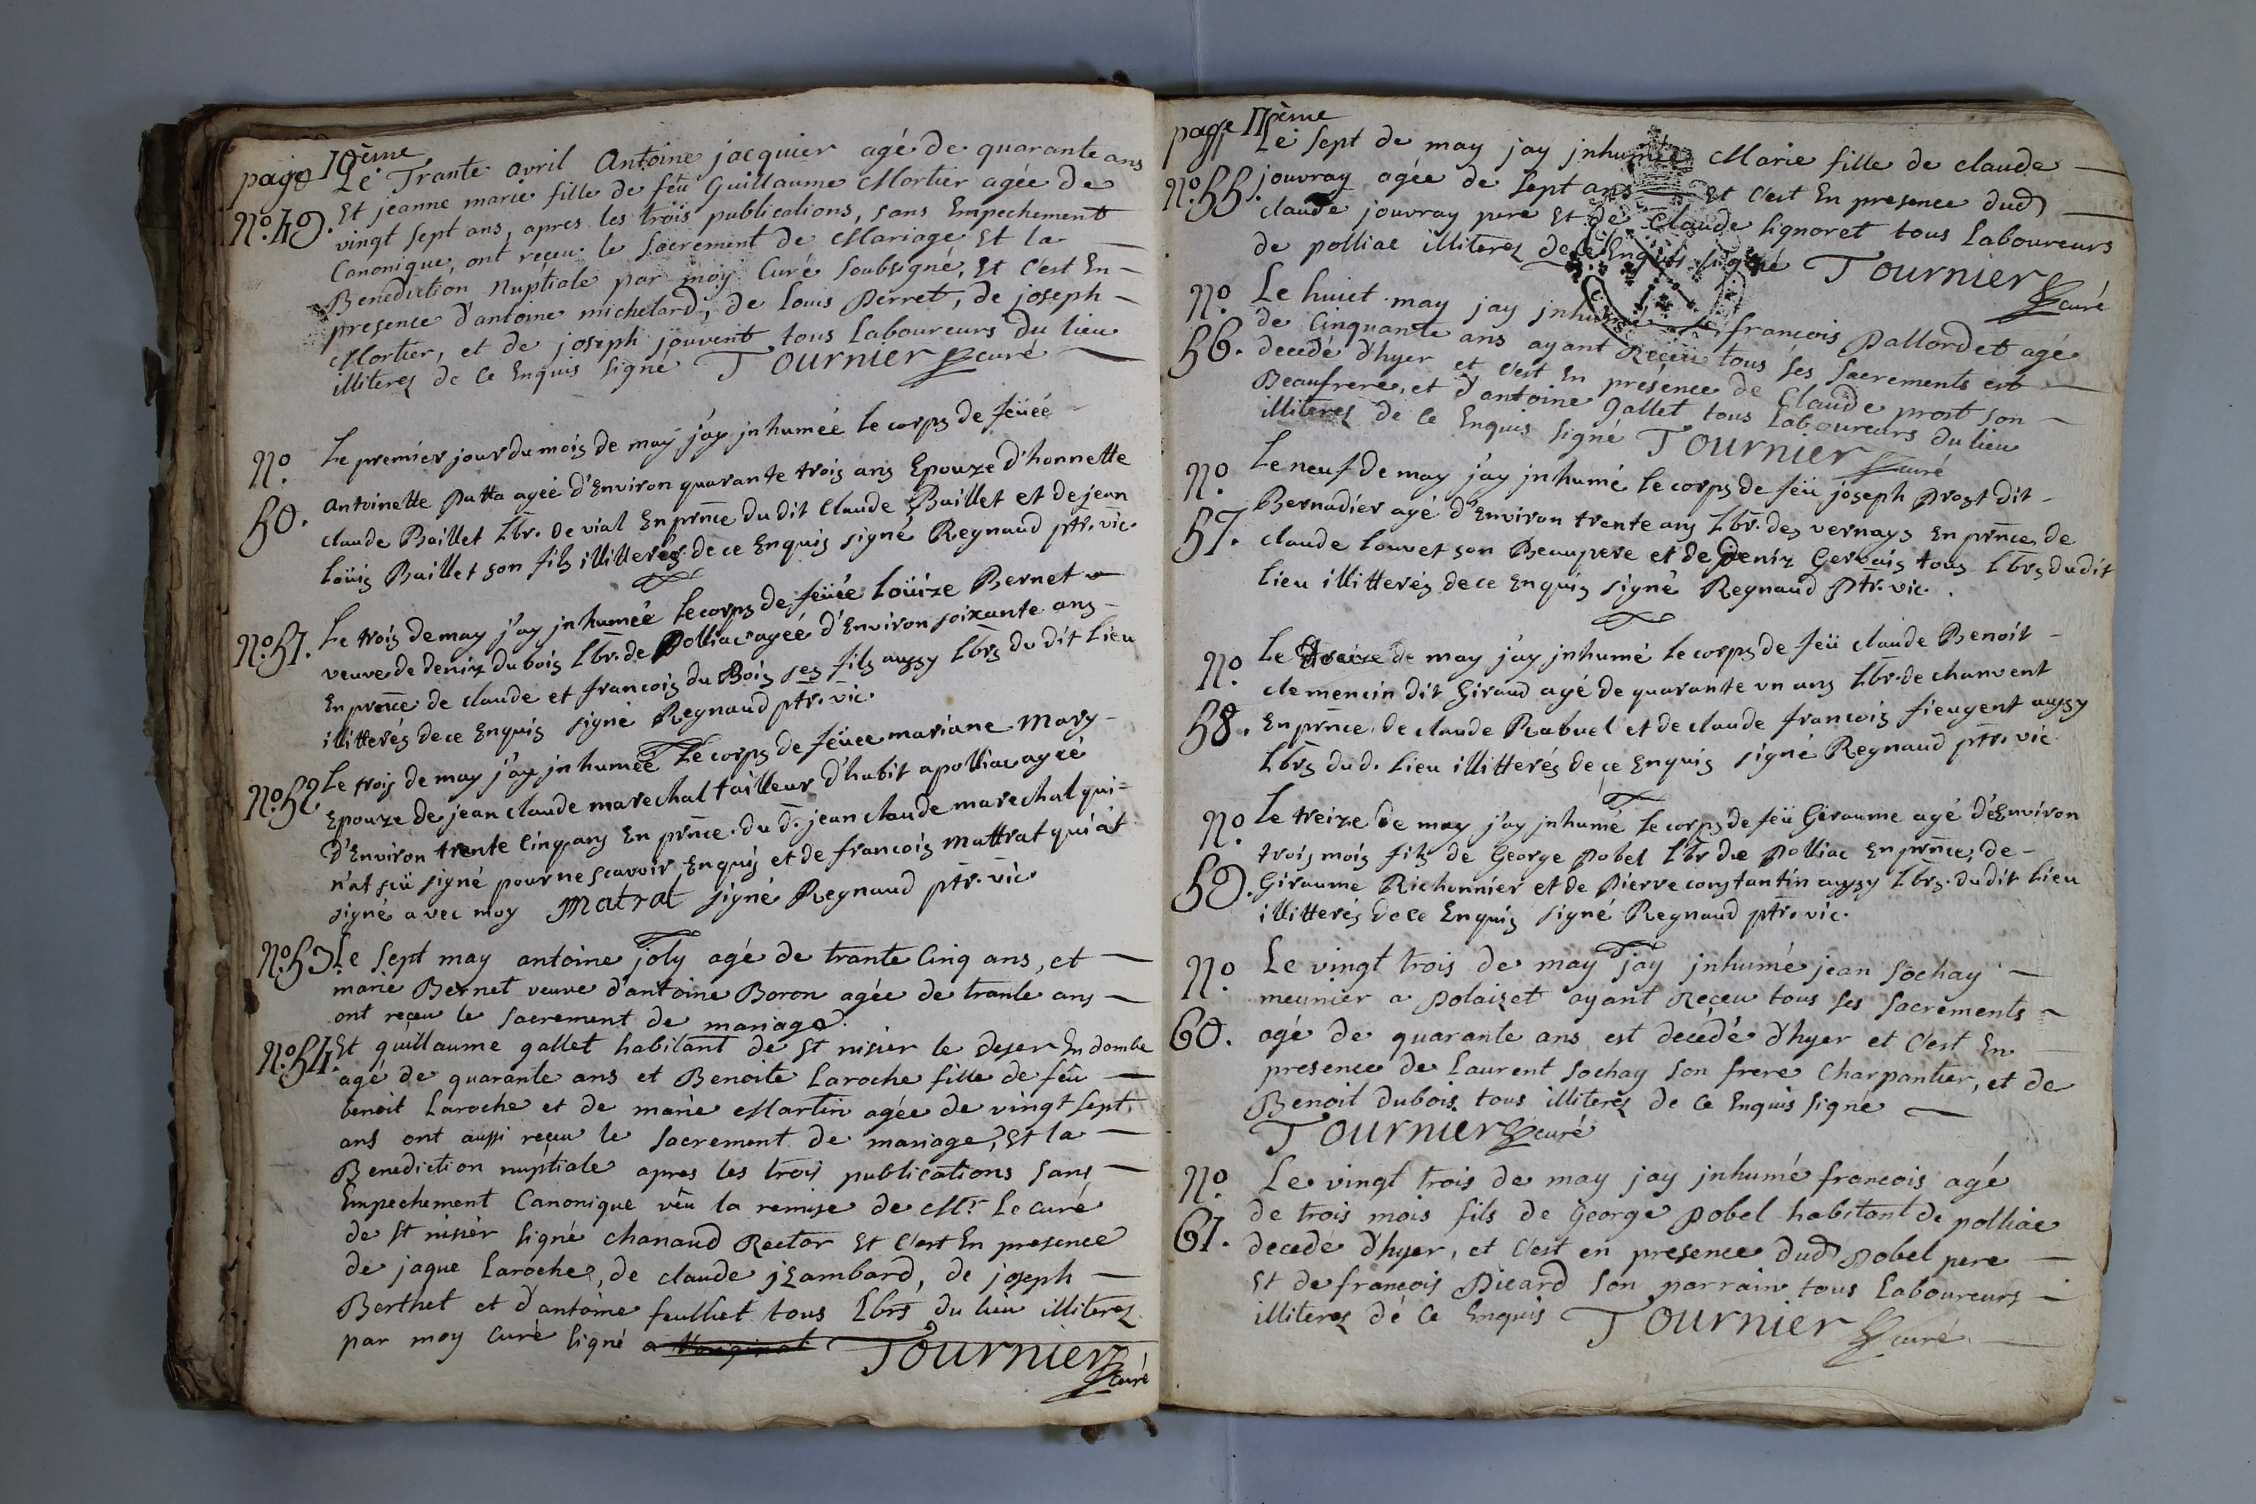 page 10ème
Le Trante avril Antoine jacquier agé de quarante ans
No. 49. Et jeanne marie fille de feû Guillaume Mortier agée de
vingt sept ans, apres les trois publications, sans Empechement
Canonique, ont reçeu le Sacrement de Mariage Et la —
Benediction Nuptiale par moy Curé Soubsigné, Et C'est En —
presence d'antoine michelard, de Louis Perret, de joseph —
Mortier, et de joseph jouvent tous Laboureurs du lieu
illiterez de Ce Enquis Signé Tournier curé —
No. Le premier jour du mois de may j'ay jnhumée le corps de feüée
50. antoinette Putta agée d'Environ quarante trois ans Epouze d'honnette
claude Baillet Lbr. de vial En prnce du dit Claude Baillet et de jean
Loüis Baillet son fils illitterés de ce Enquis signé Regnaud ptr. vic.
No. 51. Le trois de may j'ay jnhumée le corps de feüée Loüize Bernet
veuve de deniz du bois Lbr. de Polliac agée d'Environ soixante ans –
En prnce de claude et francois du Bois ses fils aussy Lbrs du dit Lieu
illitterés de ce Enquis signé Regnaud ptr. vic.
No. 52 Le trois de may j'ay jnhumée Le corps de feüee mariane Mary –
Epouze de jean claude marechal tailleur d'habit a polliac agée
d'Environ trente Cinq ans En prnce. du d. jean claude marechal qui =
n'at sçû signé pour ne scavoir Enquis et de francois mattrat qui at
signé avec moy Matrat signé Regnaud ptr. vic.
No. 53. Le Sept may antoine joly agé de trante Cinq ans, et —
marie Bernet veuve d'antoine Boron agée de trante ans —
ont reçeu le Sacrement de mariage.
No. 54. Et guillaume gallet habitant de St nisier le deser En dombe
agé de quarante ans et Benoite Laroche fille de feû —
benoit Laroche et de marie Martin agée de vingt Sept
ans ont aussi reçeu le Sacrement de mariage, Et la —
Benediction nuptiale apres les trois publications Sans —
Empechement Canonique vêu la remise de Mr. Le Curé
de St nisier Signé chanaud Rector Et C'est En presence
de jaque Laroche, de claude jzambard, de joseph —
Berthet et d'antoine feulliet tous Lbrs du lieu illiterez
par moy Curé Signé a l'original Tournier
curé
page 11ème
Le Sept de may jay jnhumée Marie fille de claude —
No. 55. jouvray agée de Sept ans Et C'est En presence dud —
claude jouvray pere Et de Claude Signoret tous Laboureurs
de polliac illiterez de Ce Enquis Signé Tournier
curé
No. Le huict may jay jnhumé francois Pallordet agé
56. de Cinquante ans ayant Reçeu tous Ses Sacrements est —
decedé d'hyer et C'est En présence de Claude prost Son —
Beaufrere, et d'antoine gallet tous Laboureurs du lieu
illiterez de Ce Enquis Signé Tournier curé
No. Le neuf de may j'ay jnhumé le corps de feü joseph Prost dit –
57. Bernadier agé d'Environ trente ans Lbr. des vernays En prnce de
claude Louvet son Beaupere et de Deniz Gervais tous Lbrs du dit
Lieu illitterés de ce Enquis signé Regnaud Ptr. vic.
No. Le treize de may j'ay jnhumé Le corps de feü claude Benoit –
58. clemencin dit Giraud agé de quarante un ans Lbr. de chanvent
En prnce. de claude Rabuel et de claude francois fieugent aussy
Lbrs du d. Lieu illitterés de ce Enquis signé Regnaud ptr. vic
No. Le treize de may j'ay jnhumé Le corps de feü Giraume agé d'Environ
59. trois mois fils de George Pobel Lbr de Polliac En prnce, de –
Giraume Richonnier et de Pierre constantin aussy Lbrs. du dit Lieu
illitterés de ce Enquis signé Regnaud ptr. vic.
No. Le vingt trois de may jay jnhumé jean Sochay —
60. meunier a Polaizet ayant Reçeu tous Ses Sacrements —
agé de quarante ans est decedé d'hyer et C'est En
presence de Laurent Sochay Son frere Charpantier, et de
Benoit dubois tous illiterez de Ce Enquis Signé —
Tournier curé
No. Le vingt trois de may jay jnhumé francois agé
61. de trois mois fils de George Pobel habitant de polliac
decedé d'hyer, et C'est en presence dud Pobel pere —
Et de francois Picard Son parrain tous Laboureurs —
illiterez de Ce Enquis Tournier curé. —